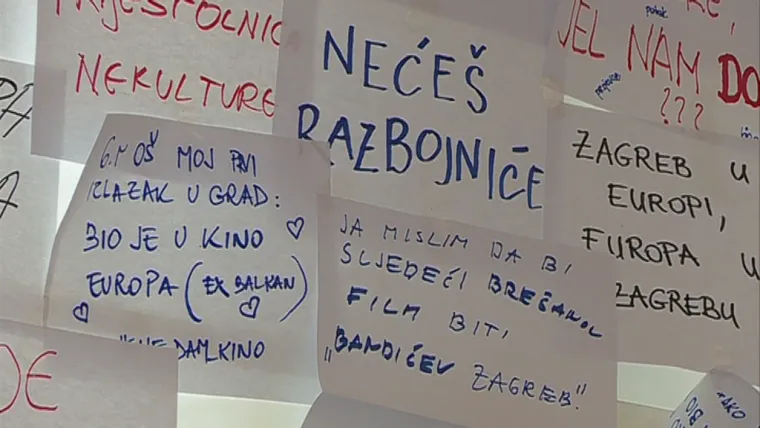 NEKULTURE
NEĆEŠ
RAZBOJNIČE
JEL NAM DO
???
6.M OŠ MOJ PRVI
IZLAZAK U GRAD:
BIO JE U KINO
EUROPA (EX BALKAN)
DAM KINO
JA MISLIM DA BI
SLJEDEĆI BREŠANOV
FILM BITI
„BANDIĆEV ZAGREB."
ZAGREB U
EUROPI,
EUROPA U
ZAGREBU